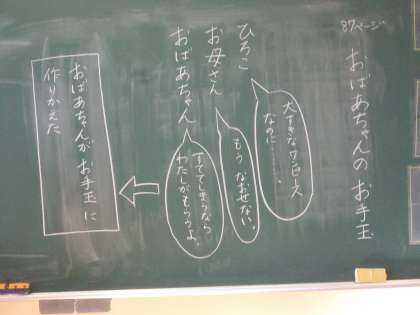 87ページ
おばあちゃんのお手玉
ひろこ
大すきなワンピース
なのに………。
お母さん
もうなおせない。
おばあちゃん
すててしまうなら
わたしがもらうよ。
おばあちゃんがお手玉に
作りかえた